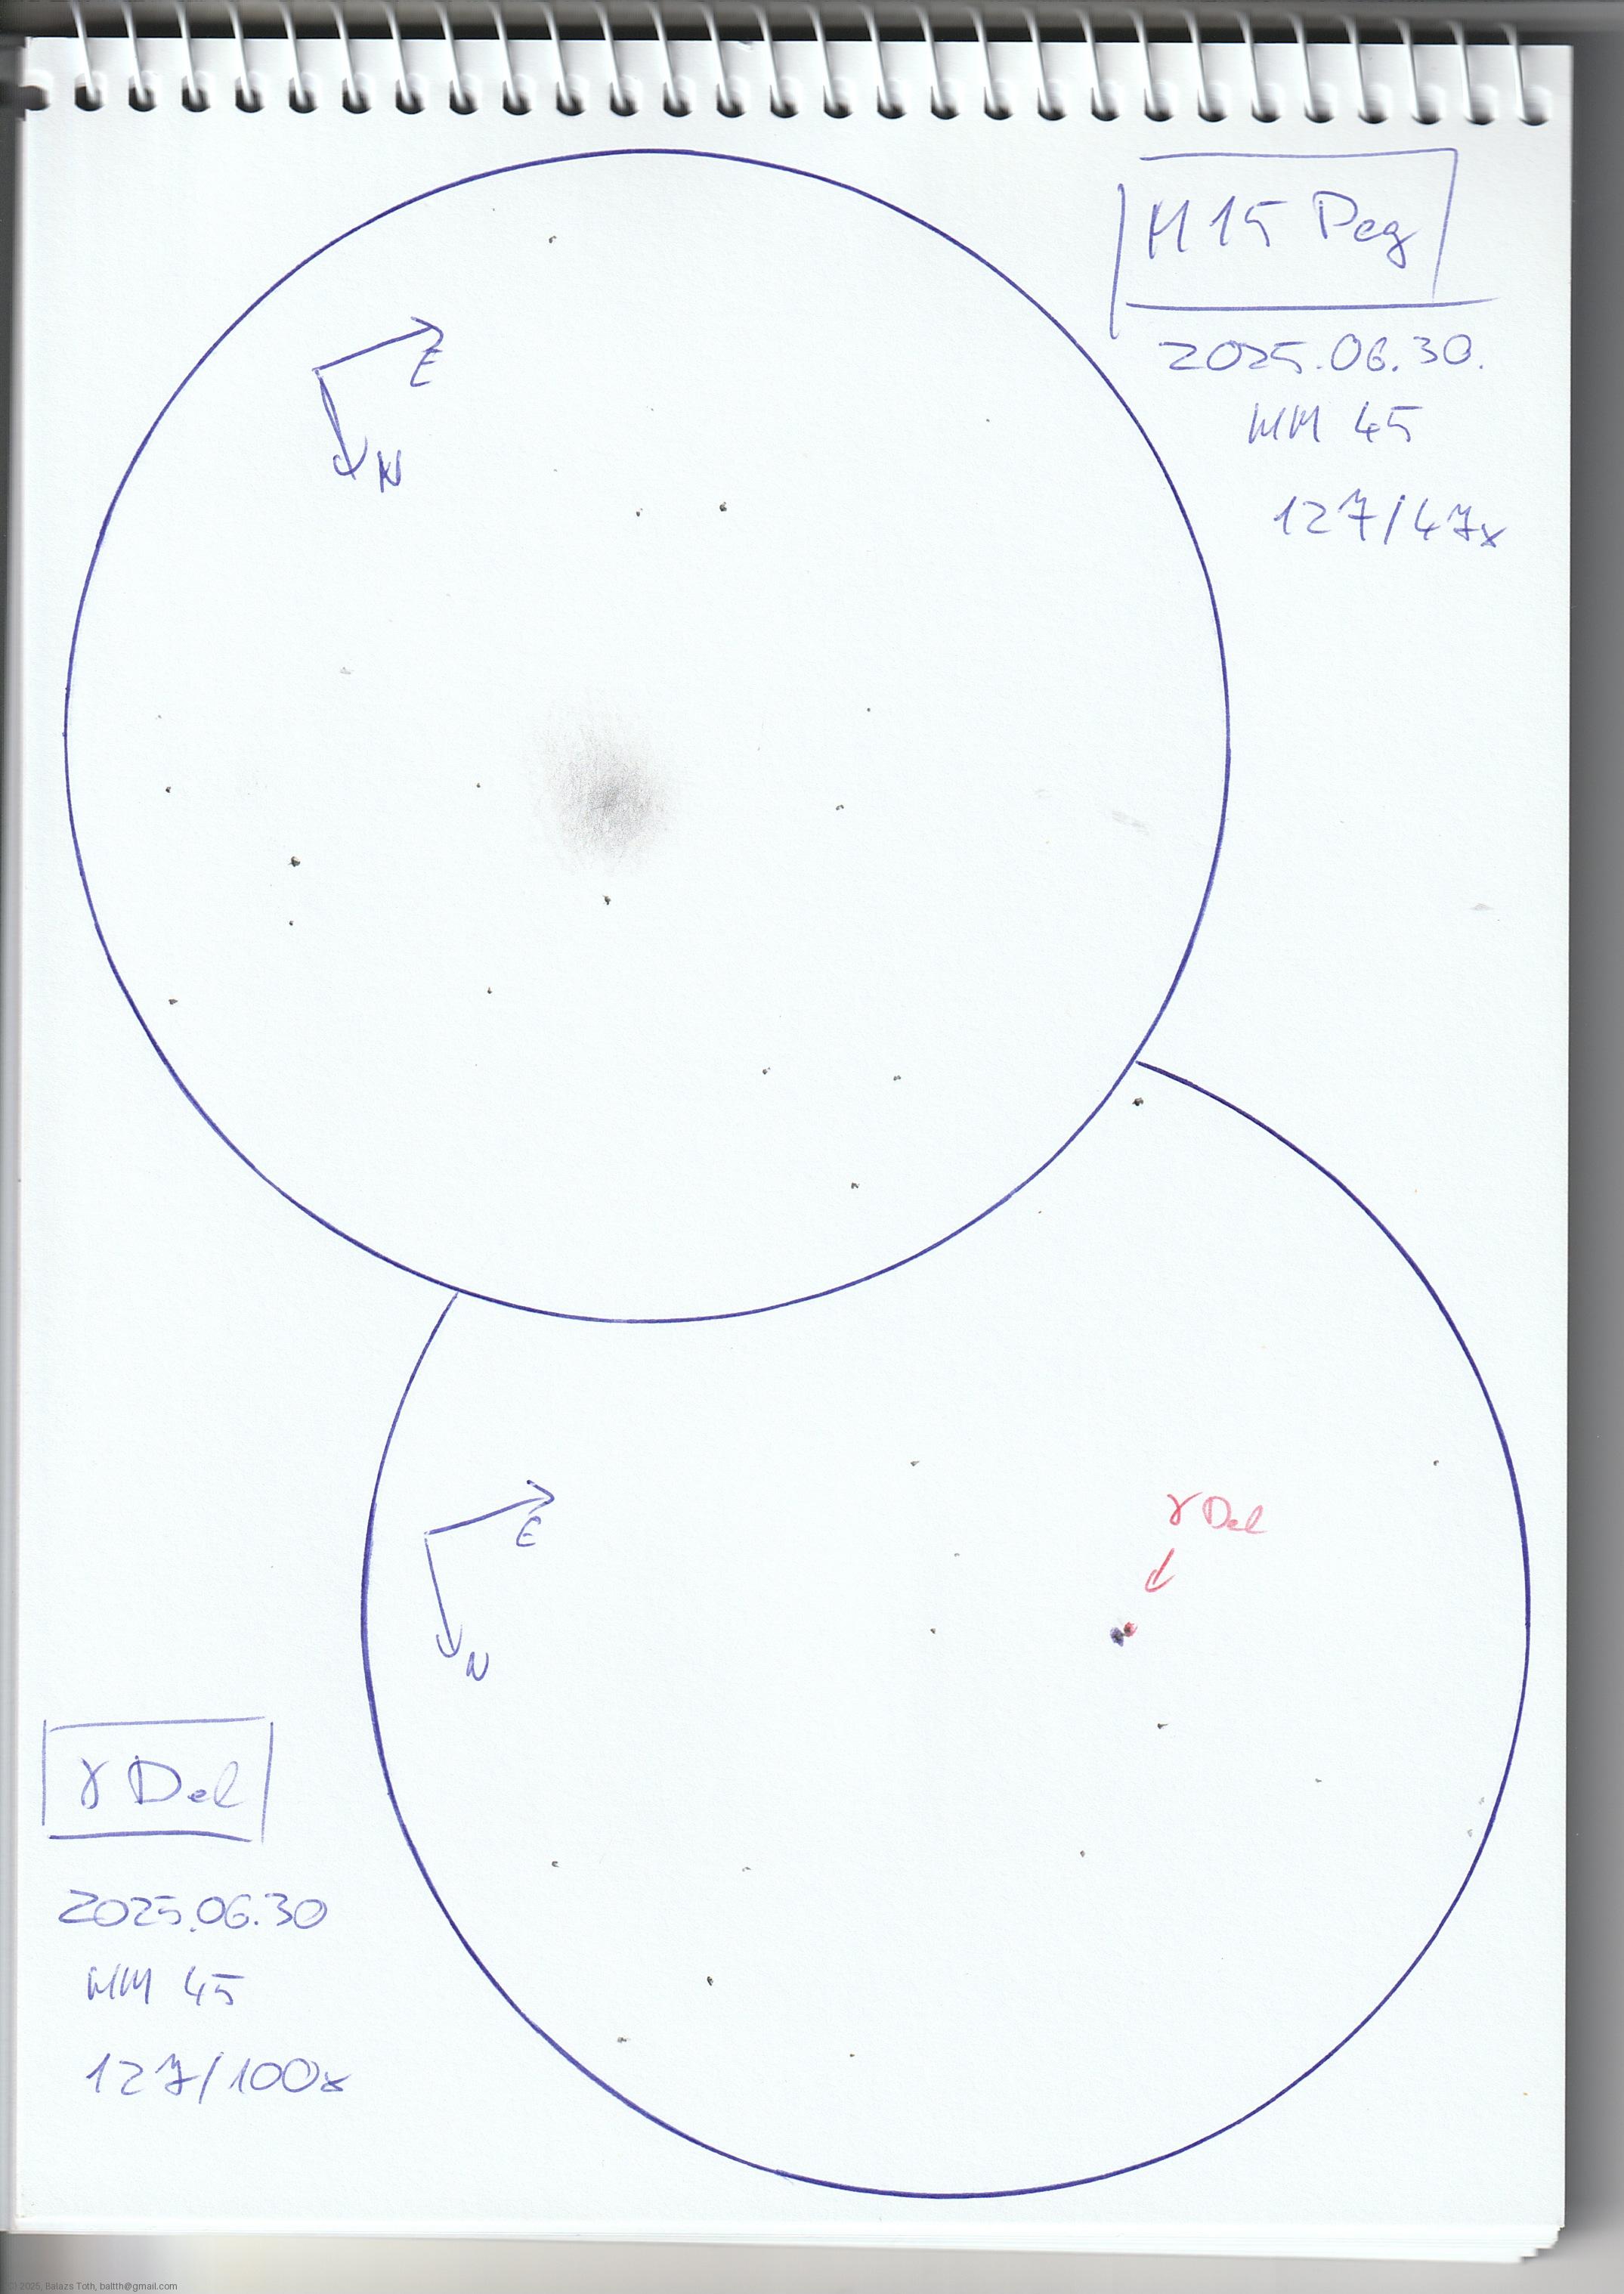 M 15 Peg
2025.06.30.
MM 45
127/47x
E
N
γ Del
E
N
γ Del
2025.06.30
MM 45
127/100x
© 2025, Balazs Toth, baltth@gmail.com